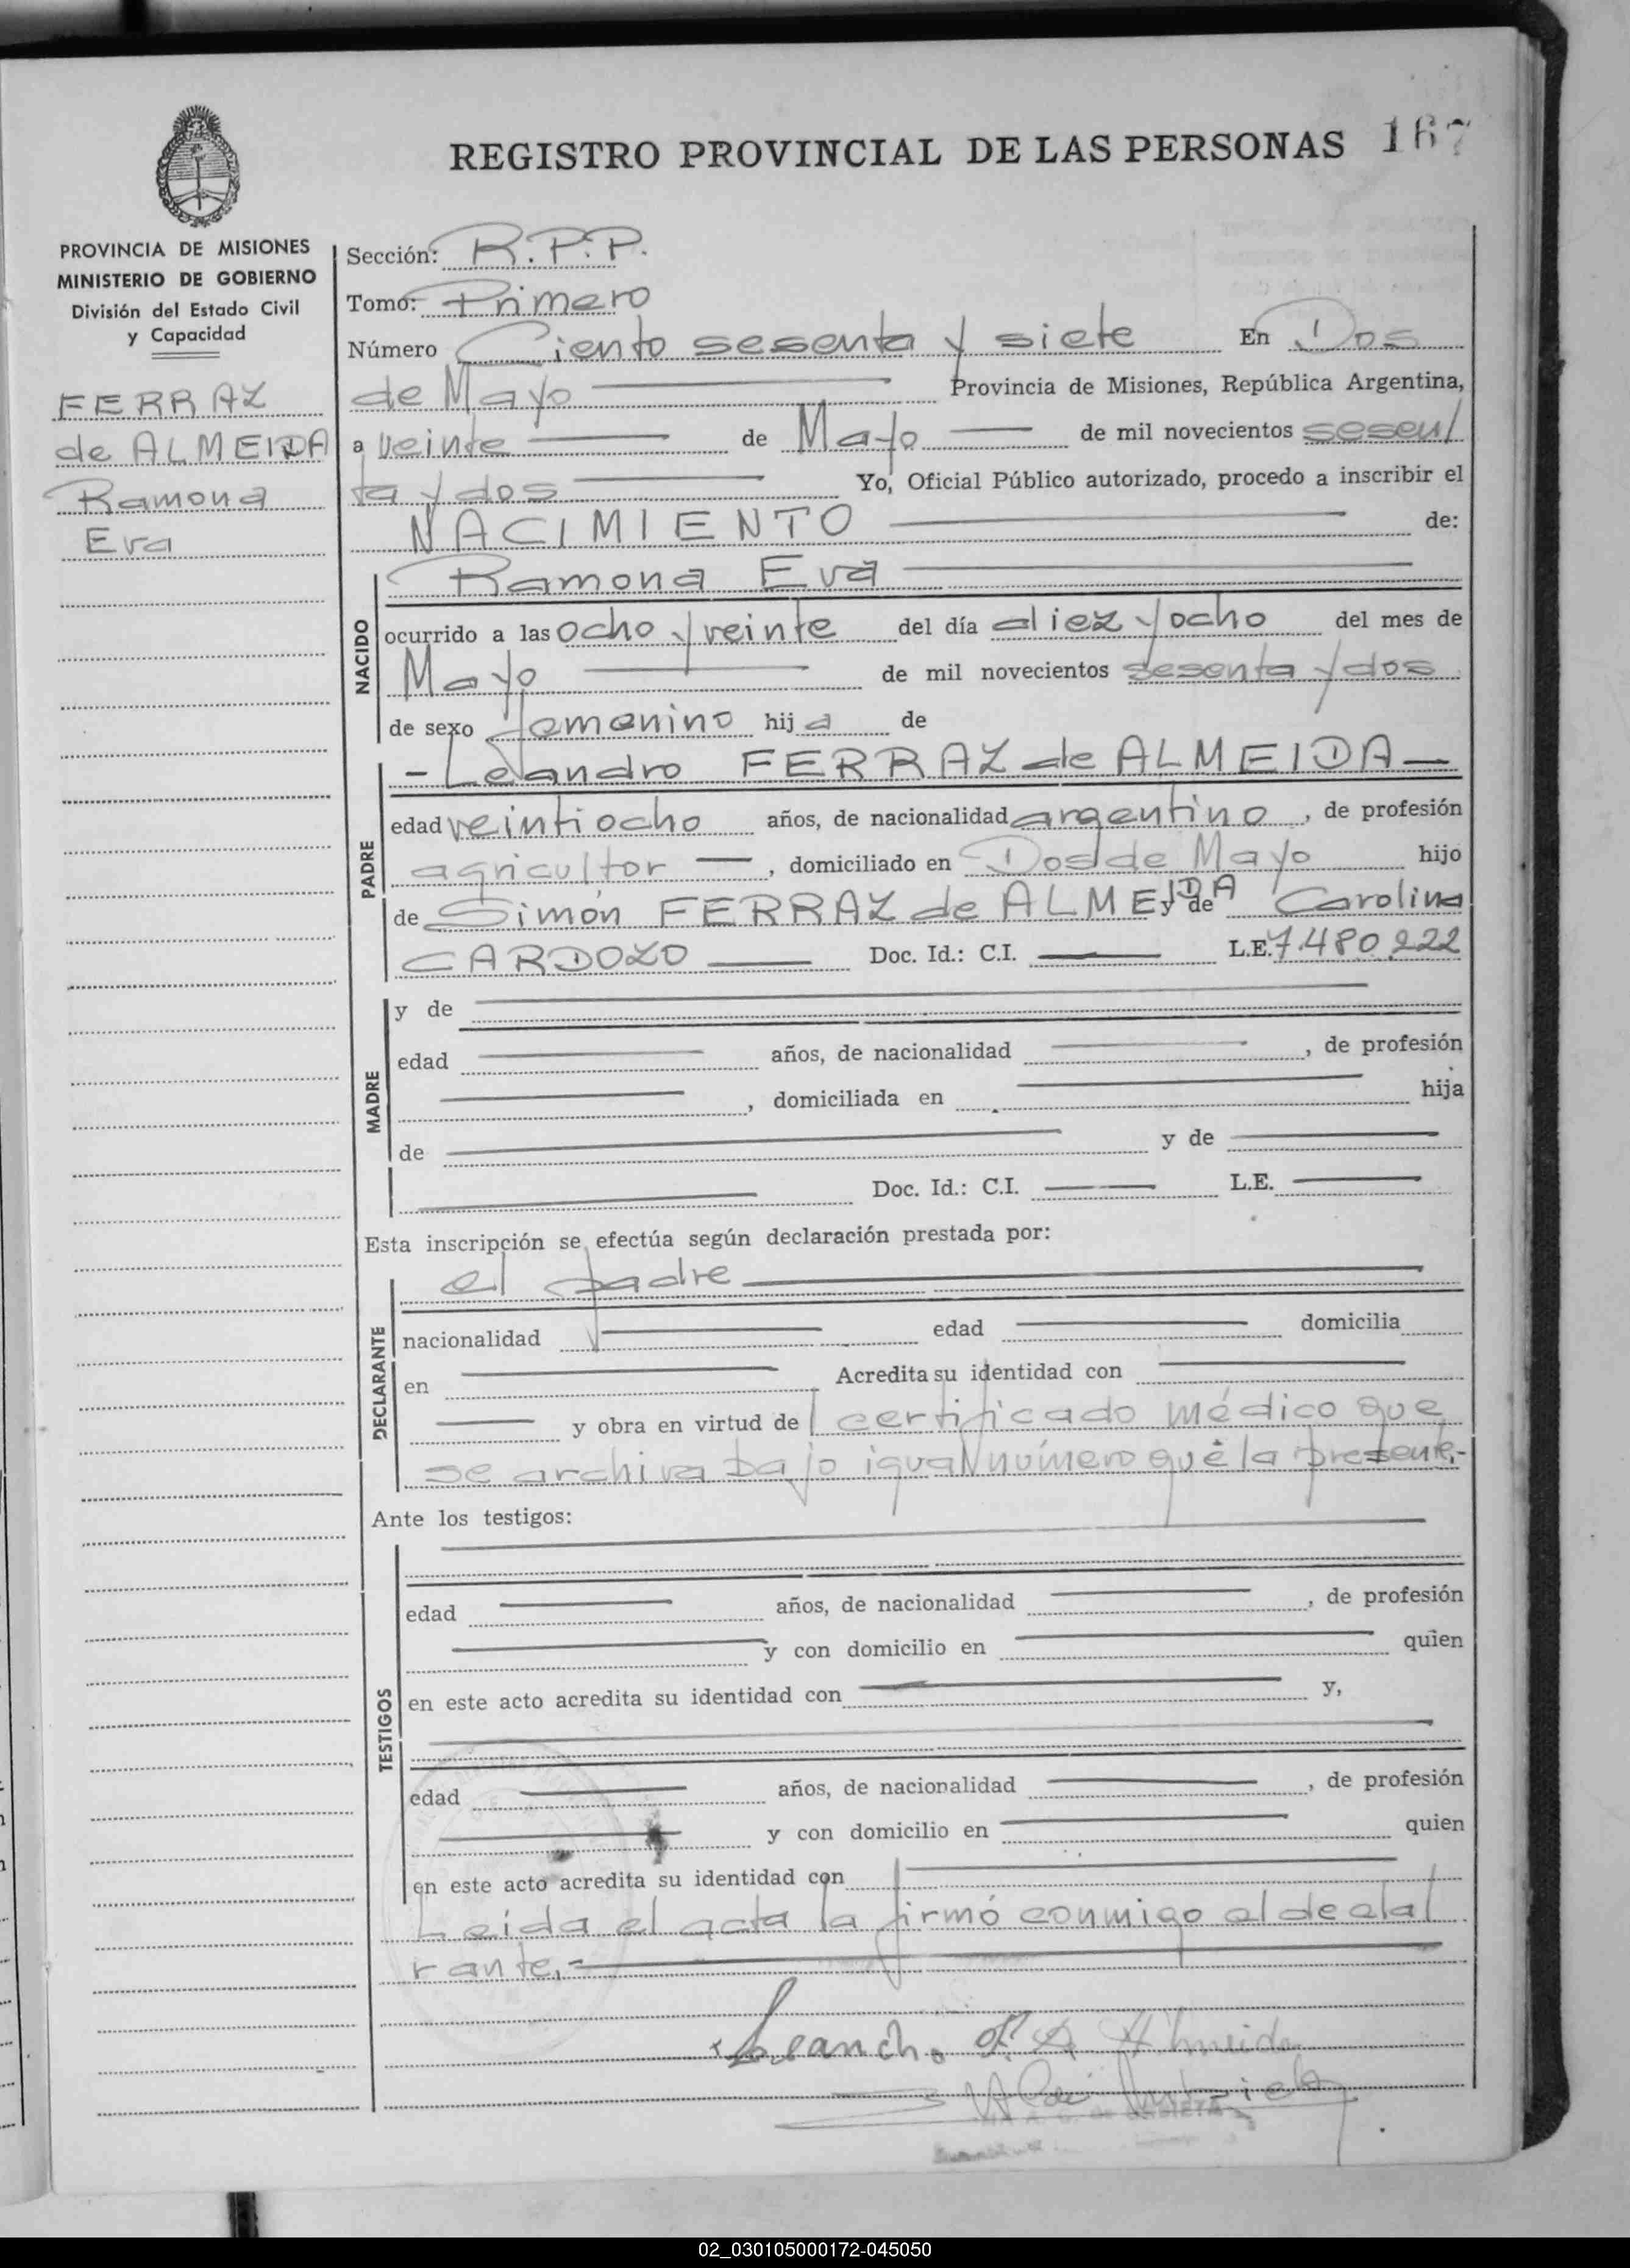 REGISTRO PROVINCIAL DE LAS PERSONAS 167
PROVINCIA DE MISIONES
MINISTERIO DE GOBIERNO
División del Estado Civil
y Capacidad
FERRAZ
de ALMEIDA
Ramona
Eva
Sección: R.P.P.
Tomo: Primero
Número Ciento sesenta y siete En Dos
de Mayo Provincia de Misiones, República Argentina,
a veinte de Mayo de mil novecientos sesen
ta y dos Yo, Oficial Público autorizado, procedo a inscribir el
NACIMIENTO de:
NACIDO
Ramona Eva
ocurrido a las ocho y veinte del día diez y ocho del mes de
Mayo de mil novecientos sesenta y dos
de sexo femenino hija de
PADRE
- Leandro FERRAZ de ALMEIDA -
edad veintiocho años, de nacionalidad argentino, de profesión
agricultor, domiciliado en Dos de Mayo hijo
de Simón FERRAZ de ALMEIDA y de Carolina
CARDOZO Doc. Id.: C.I. L.E. 7.480.222
MADRE
y de
edad años, de nacionalidad , de profesión
, domiciliada en hija
de y de
Doc. Id.: C.I. L.E.
Esta inscripción se efectúa según declaración prestada por:
DECLARANTE
el padre
nacionalidad edad domicilia
en Acredita su identidad con
y obra en virtud de certificado médico que
se archiva bajo igual número que la presente.-
Ante los testigos:
TESTIGOS
edad años, de nacionalidad , de profesión
y con domicilio en quien
en este acto acredita su identidad con y,
edad años, de nacionalidad , de profesión
y con domicilio en quien
en este acto acredita su identidad con
Leida el acta la firmó conmigo el decla
rante.-
Leandro F. D. Almeida
02_030105000172-045050